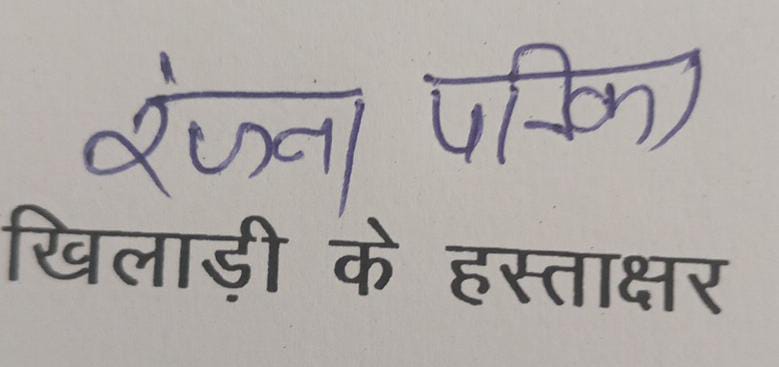 रंजना
खिलाड़ी के हस्ताक्षर